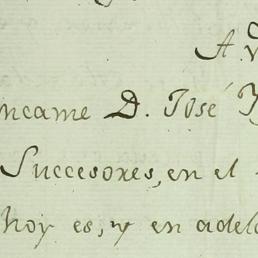 A.
ncame D. José
Successores, en el
hoy es, y en adel